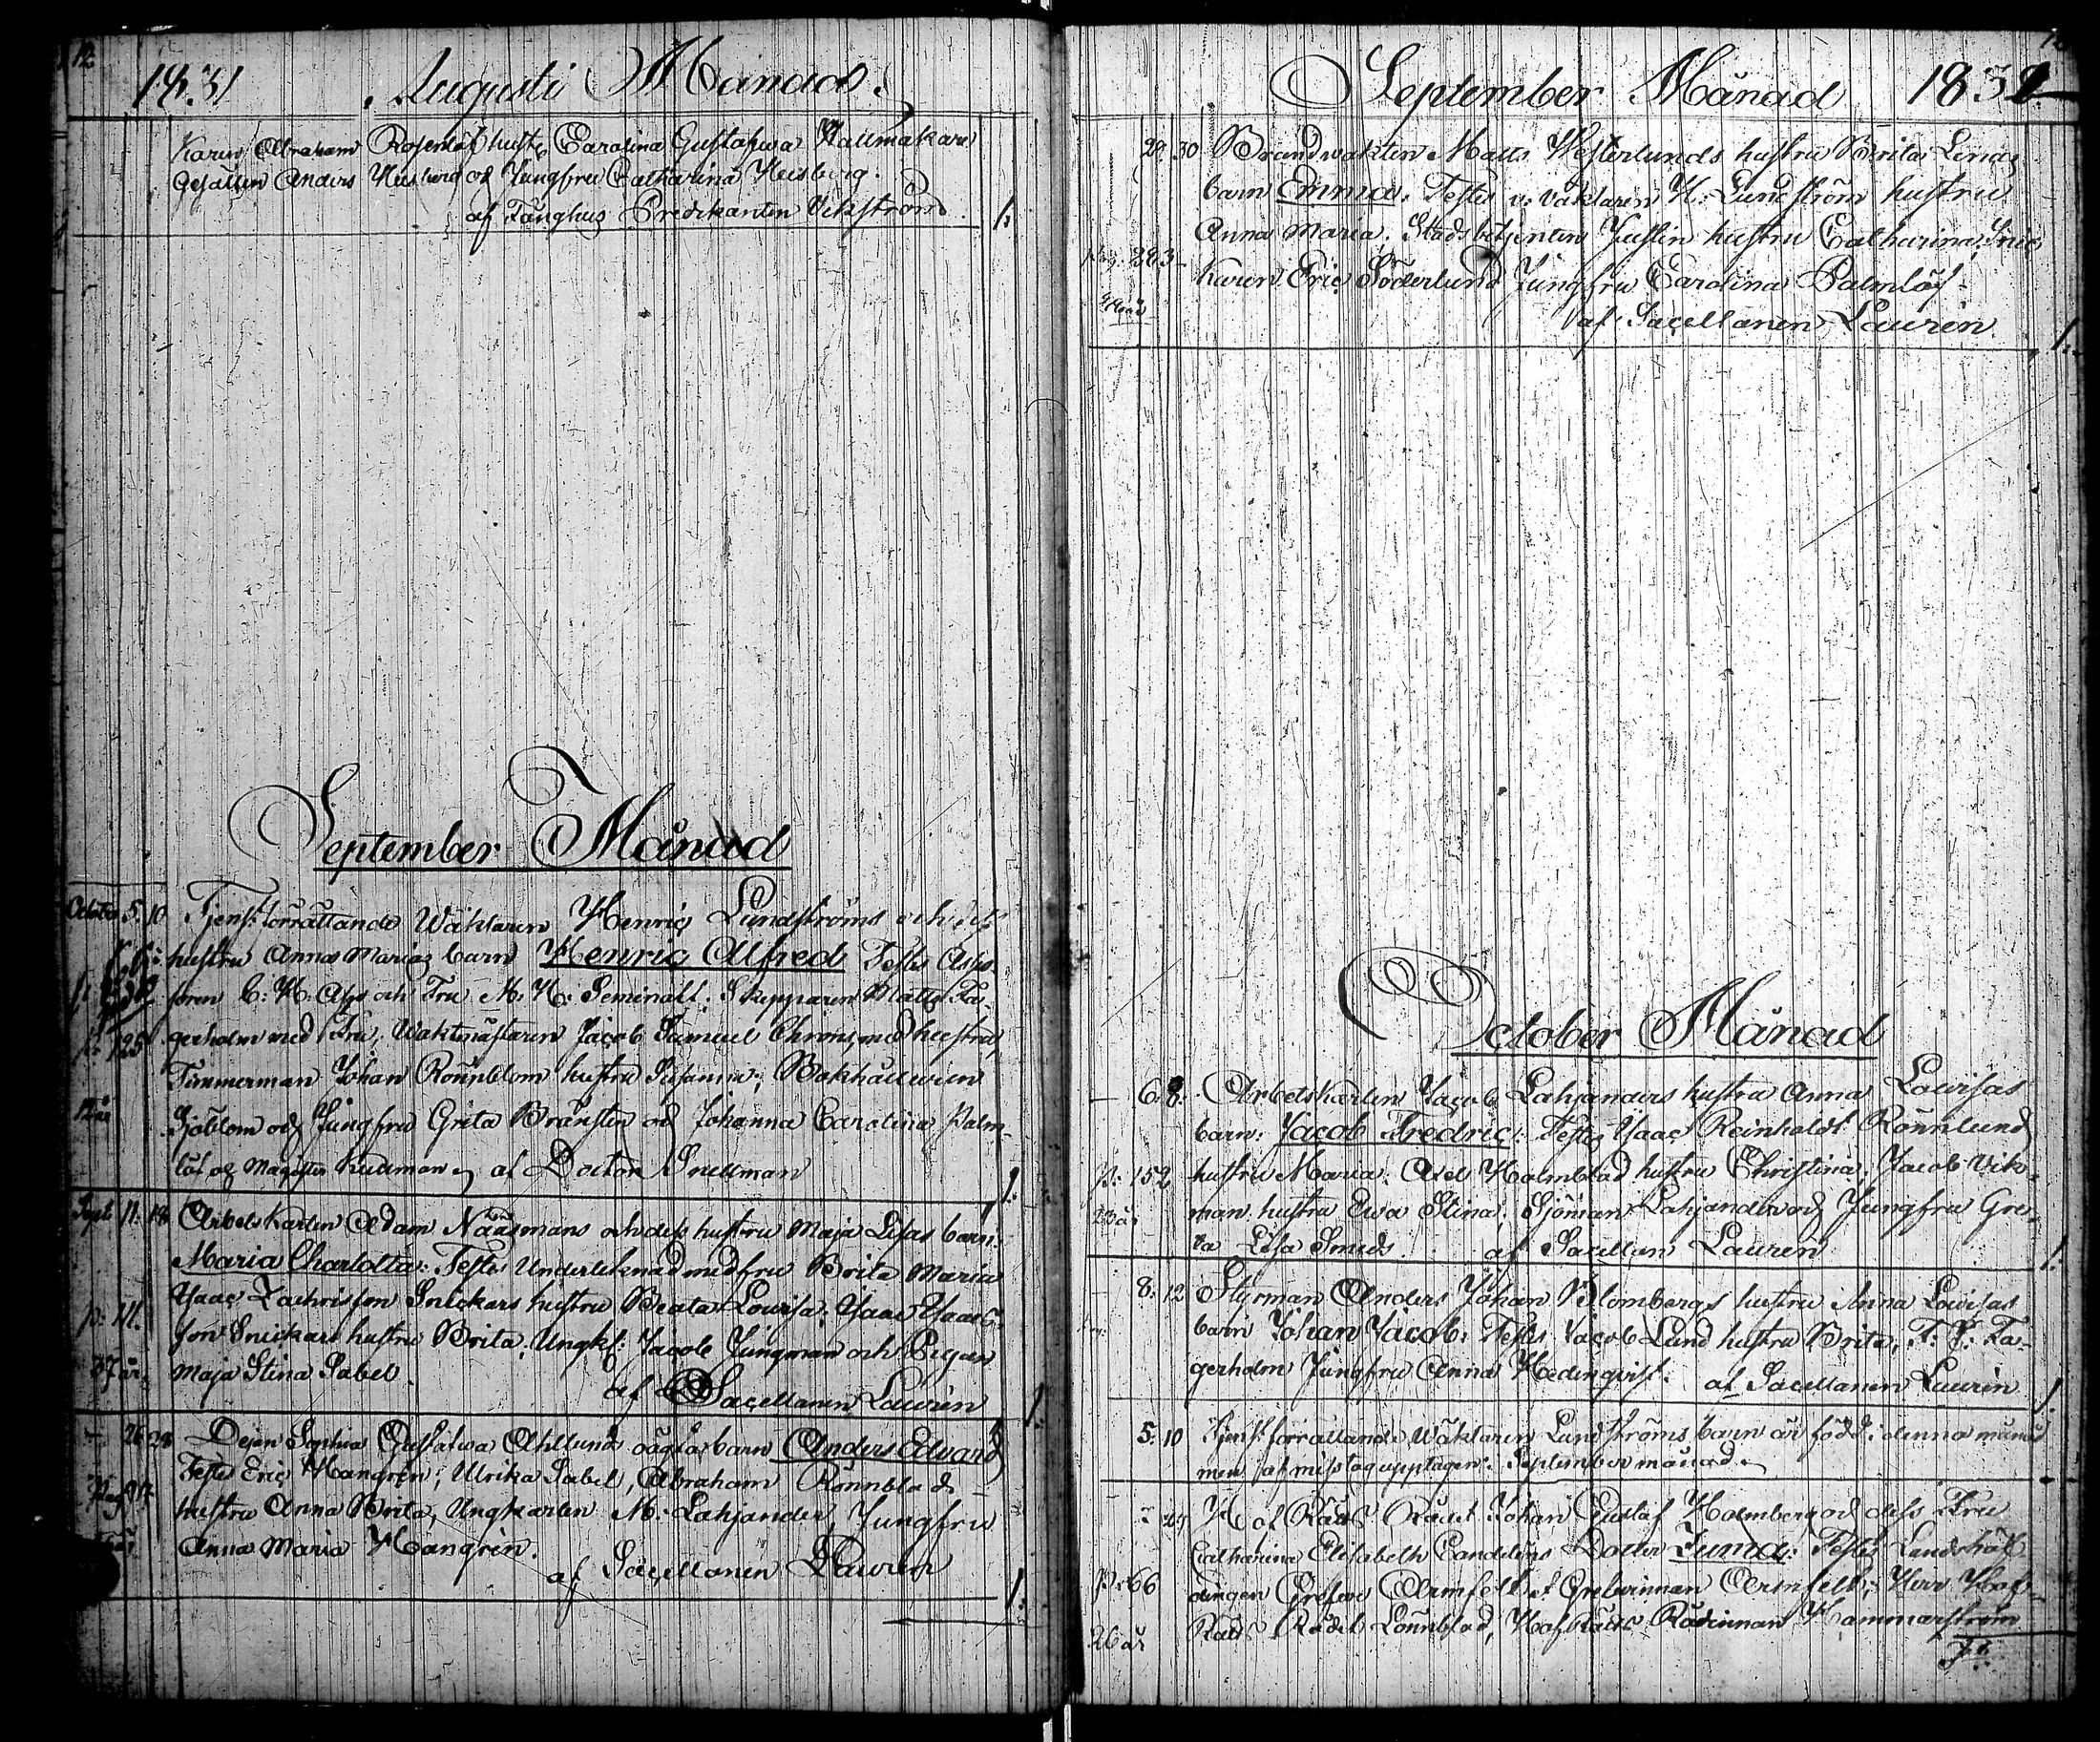 12.
1831 Augusti Månad.
karen Abraham Rosenlöf hust: Carolina Gustafwa Hattmakare
Gesällen Anders Heisberg och Jungfru Catharina Heisberg.
af Fånghus Predikanten Vikström. 1.
September Månad
October 5. 10 Tjenst:förrättande Wäktaren Henric Lundströms och dess
hustru Anna Marias barn Henric Alfred Testes Asses-
soren C: H: Alps och Fru M: H: Seminall. Skepparen Matts Fa-
p: 125 gerholm med Fru, Waktmästaren Jacob Samuel Chrons, med hustru,
Timmerman Johan Rönnblom hustru Susanna; Bokhållaren
42 år Sjöblom och Jungfru Greta Bränsten och Johanna Carolina Palm-
löf og Magister Kuckman, af Doctor Snellman 1.
Sept: 11. 18 Arbets karlen Adam Näasmans och dess hustru Maja Lisas barn:
Maria Charlotta: Testes Underteknad med fru Brita Maria
p: 111. Isaac Zachrisson Snickars hustru Beata Lowisa; Isaac Isaacs-
son Snickars hustru Brita, Ungk: Jacob Jungman och Pigan
37 år. Maja Stina Sabel.
af Sacellanen Laurén 1.
— 26 28 Dejan Sophia Gustafwa Ahllunds oägta barn Anders Edvard
Testes Eric Hangrén; Ulrika Sabel, Abraham Rönnblads
Pag 94 hustru Anna Brita, Ungkarlen M: Lahjander, Jungfru
Anna Maria Hangrén.
af Sacellanen Laurén 1.
September Månad 1831.
29. 30 Brandwakten Matts Westerlunds hustru Brita Lenas
barn Emma. Testes v: vaktaren H: Lundström hustru
Anna Maria. Stadsbetjenten Justin hustru Catharina, Snic
Pag. 283 karen Eric Söderlund Jungfru Carolina Palmlöf
af Sacellanen Laurén 1.
October Månad
— 6. 8. Arbetskarlen Jacob Lahjanders hustru Anna Lowisas
barn: Jacob Fredric: Testes Isaac Reinholdt Rönnlund
p: 152 hustru Maria: Axel Holmblad hustru Christina; Jacob Vik-
23 år man hustru Ewa Stina; Sjöman Lahjander och Jungfru Gre-
ta Lisa Smeds. af Sacellan Laurén 1.
— 8. 12 Styrman Anders Johan Blombergs hustru Anna Lowisas
barn Johan Jacob: Testes Jacob Lund hustru Brita, F: F: Fa-
gerholm Jungfru Anna Hedinqvist. af Sacellanen Laurén 1.
5. 10 Tjenst:förrättande Wäktaren Lundströms barn är född i denna månad
men af misstag upptagen i September månad.
— 29 H of Rätts Rådet Johan Gustaf Holmberg och dess Fru
Catharina Elisabeth Candelins Dotter Fema: Testes Landshöf-
p: 66 dingen Grefwe Armfelt et Grefwinnan Armfelt; Herr Hof-
26 år Rätts Rådet Lönnblad, Hof Rätts Rådinnan Hammarström